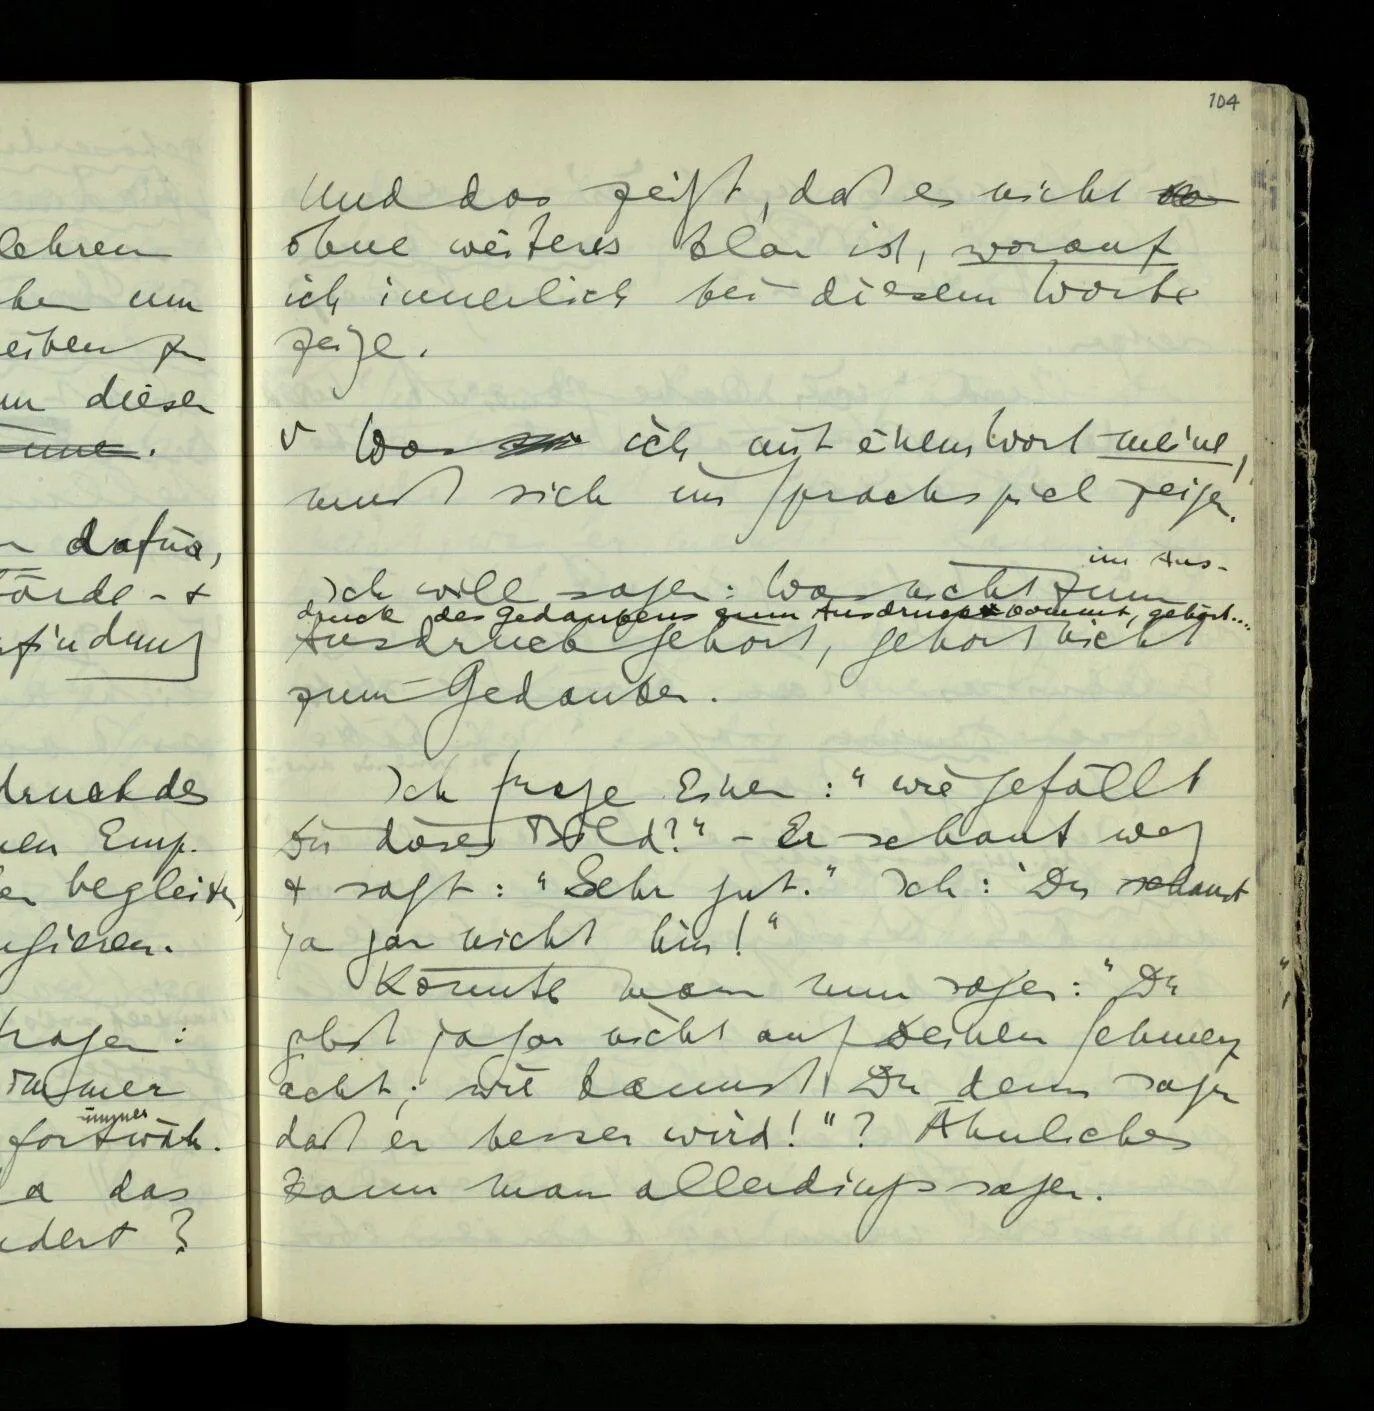 104
lehren
um
dieser
dafür,
örde - +
findung
druck des
nen Emp.
er begleiten,
ugieren.
tragen :
immer
immer
fortwäh.
a das
ndert ?
Und das zeigt, daß es nicht
ohne weiteres klar ist, worauf
ich innerlich bei diesem Worte
zeige.
v Was ich mit einem Wort meine,
muß sich im Sprachspiel zeigen.
im Aus-
Ich will sagen: Was nicht zum
druck des Gedankens zum Ausdruck kommt, gehört....
Ausdruck gehört, gehört nicht
zum Gedanken.
Ich frage Einen : "wie gefällt
Dir dieses Bild?" – Er schaut weg
+ sagt : "Sehr gut." Ich : "Du schaust
ja gar nicht hin!"
Könnte man nun sagen: "Du
gibst ja gar nicht auf Deinen Schmerz
acht; wie kannst Du denn sagen
daß er besser wird!"? Ähnliches
kann man allerdings sagen.